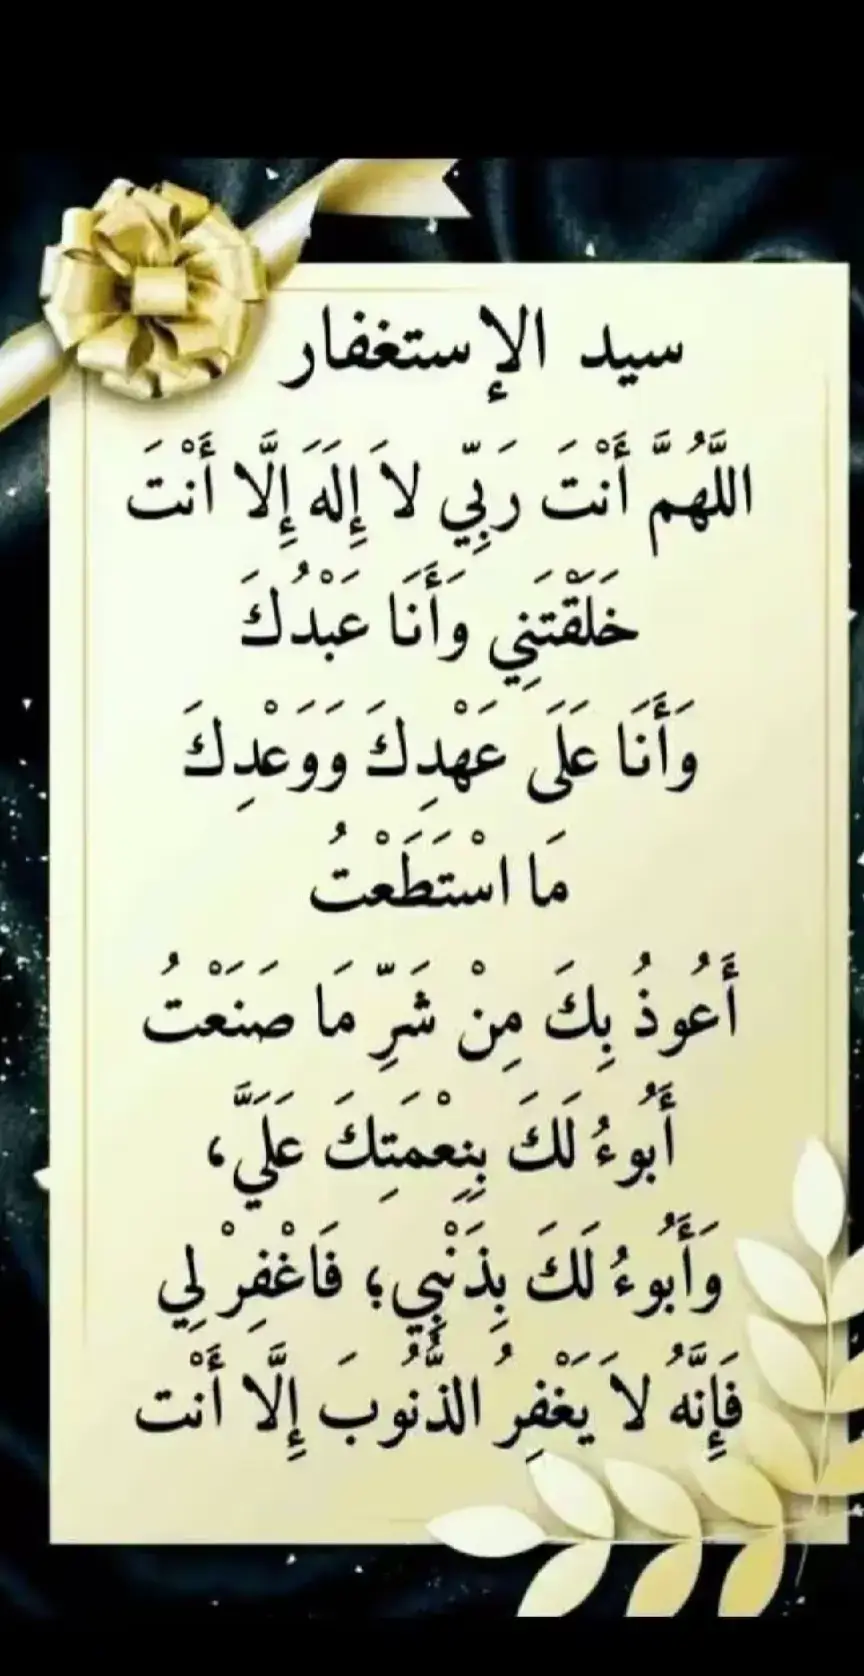 سيد الإستغفار
اللَّهُمَّ أَنْتَ رَبِّي لاَ إِلَهَ إِلَّا أَنْتَ
خَلَقْتَنِي وَأَنَا عَبْدُكَ
وَأَنَا عَلَى عَهْدِكَ وَوَعْدِكَ
مَا اسْتَطَعْتُ
أَعُوذُ بِكَ مِنْ شَرِّ مَا صَنَعْتُ
أَبُوءُ لَكَ بِنِعْمَتِكَ عَلَيَّ،
وَأَبُوءُ لَكَ بِذَنْبِي؛ فَاغْفِرْ لِي
فَإِنَّهُ لاَ يَغْفِرُ الذُّنُوبَ إِلَّا أَنْت